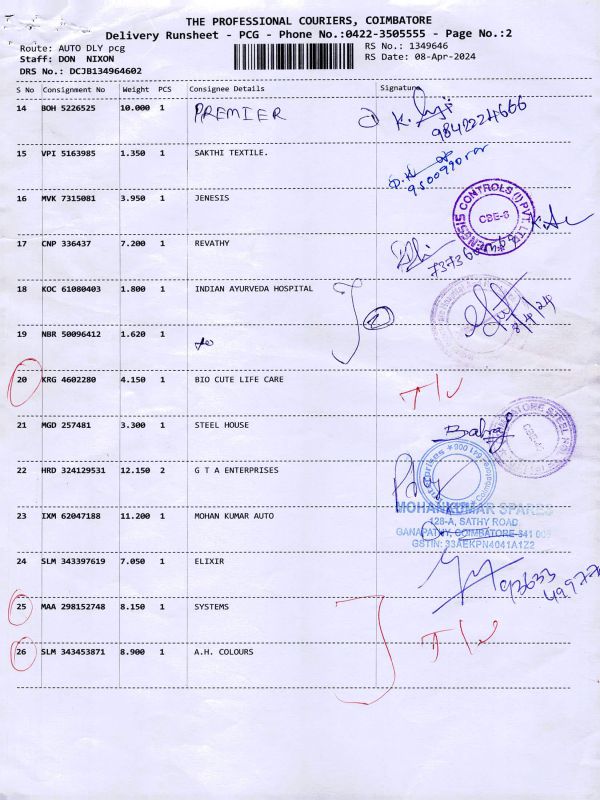 THE PROFESSIONAL COURIERS, COIMBATORE
Delivery Runsheet - PCG - Phone No.:0422-3505555 - Page No.:2
Route: AUTO DLY pcg
RS No.: 1349646
Staff: DON NIXON
RS Date: 08-Apr-2024
DRS No.: DCJB134964602
S No Consignment No Weight PCS Consignee Details Signature
14 BOH 5226525 10.000 1 PREMIER
9842224666
15 VPI 5163985 1.350 1 SAKTHI TEXTILE.
16 MVK 7315081 3.950 1 JENESIS
JENESIS CONTROLS (I) PVT. LTD.
CBE-6
17 CNP 336437 7.200 1 REVATHY
18 KOC 61080403 1.800 1 INDIAN AYURVEDA HOSPITAL
2
8/4/24
19 NBR 50096412 1.620 1 do
20 KRG 4602280 4.150 1 BIO CUTE LIFE CARE
21 MGD 257481 3.300 1 STEEL HOUSE
22 HRD 324129531 12.150 2 G T A ENTERPRISES
23 IXM 62047188 11.200 1 MOHAN KUMAR AUTO
MOHANKUMAR SPARES
128-A, SATHY ROAD,
GANAPATHY, COIMBATORE-641 006
GSTIN: 33AEKPN4041A1Z2
24 SLM 343397619 7.050 1 ELIXIR
25 MAA 298152748 8.150 1 SYSTEMS
26 SLM 343453871 8.900 1 A.H. COLOURS